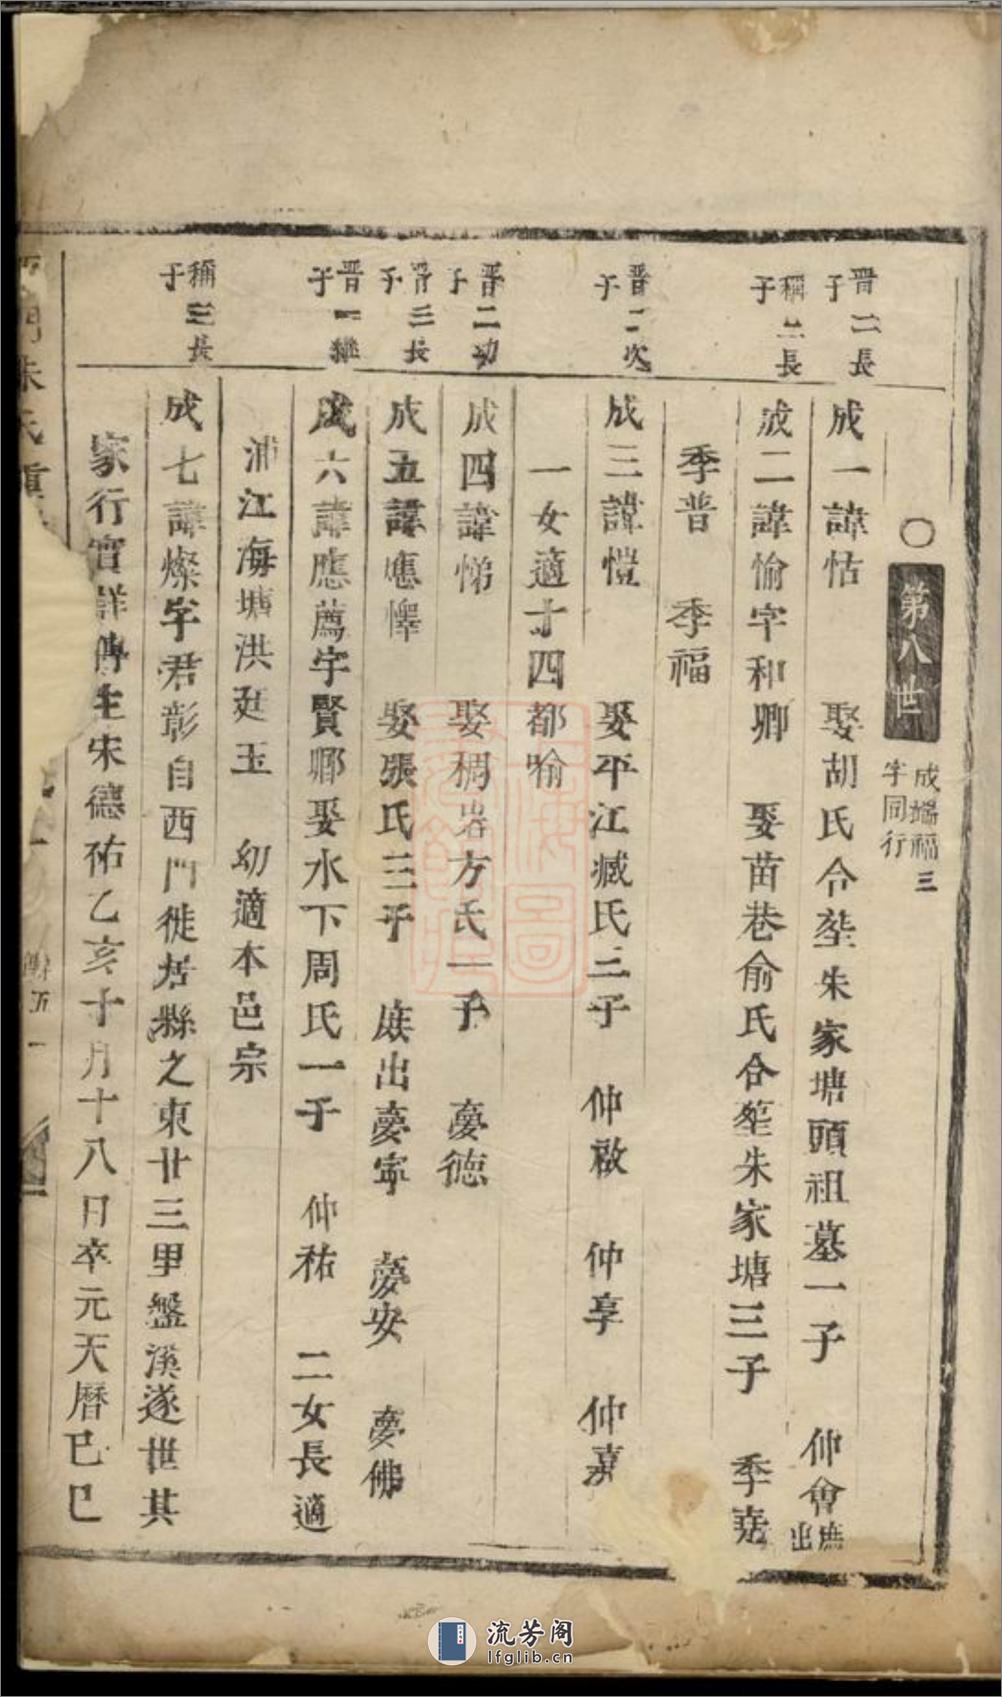 ○第八世 成端福三字同行
晋二長子
成一諱怙 娶胡氏合塟朱家塘頭祖墓一子 仲會庶出
稱二長子
成二諱愉字和卿 娶苗巷俞氏合塟朱家塘三子 季堯
季普 季福
晋二次子
成三諱愷 娶平江臧氏三子 仲啟 仲享 仲嘉
一女適十四都喻
晋二幼子
成四諱悌 娶稠岩方氏一子 夢德
晋三長子
成五諱應懌 娶張氏三子 庶出夢寧 夢安 夢佛
晋一繼子
成六諱應薦字賢卿娶水下周氏一子 仲祐 二女長適
浦江海塘洪廷玉 幼適本邑宗
稱三長子
成七諱燦字君彰自西門徙居縣之東廿三里盤溪遂世其
家行實詳傳生宋德祐乙亥十月十八日卒元天曆己巳
門朱氏
流芳阁
lfglib.cn